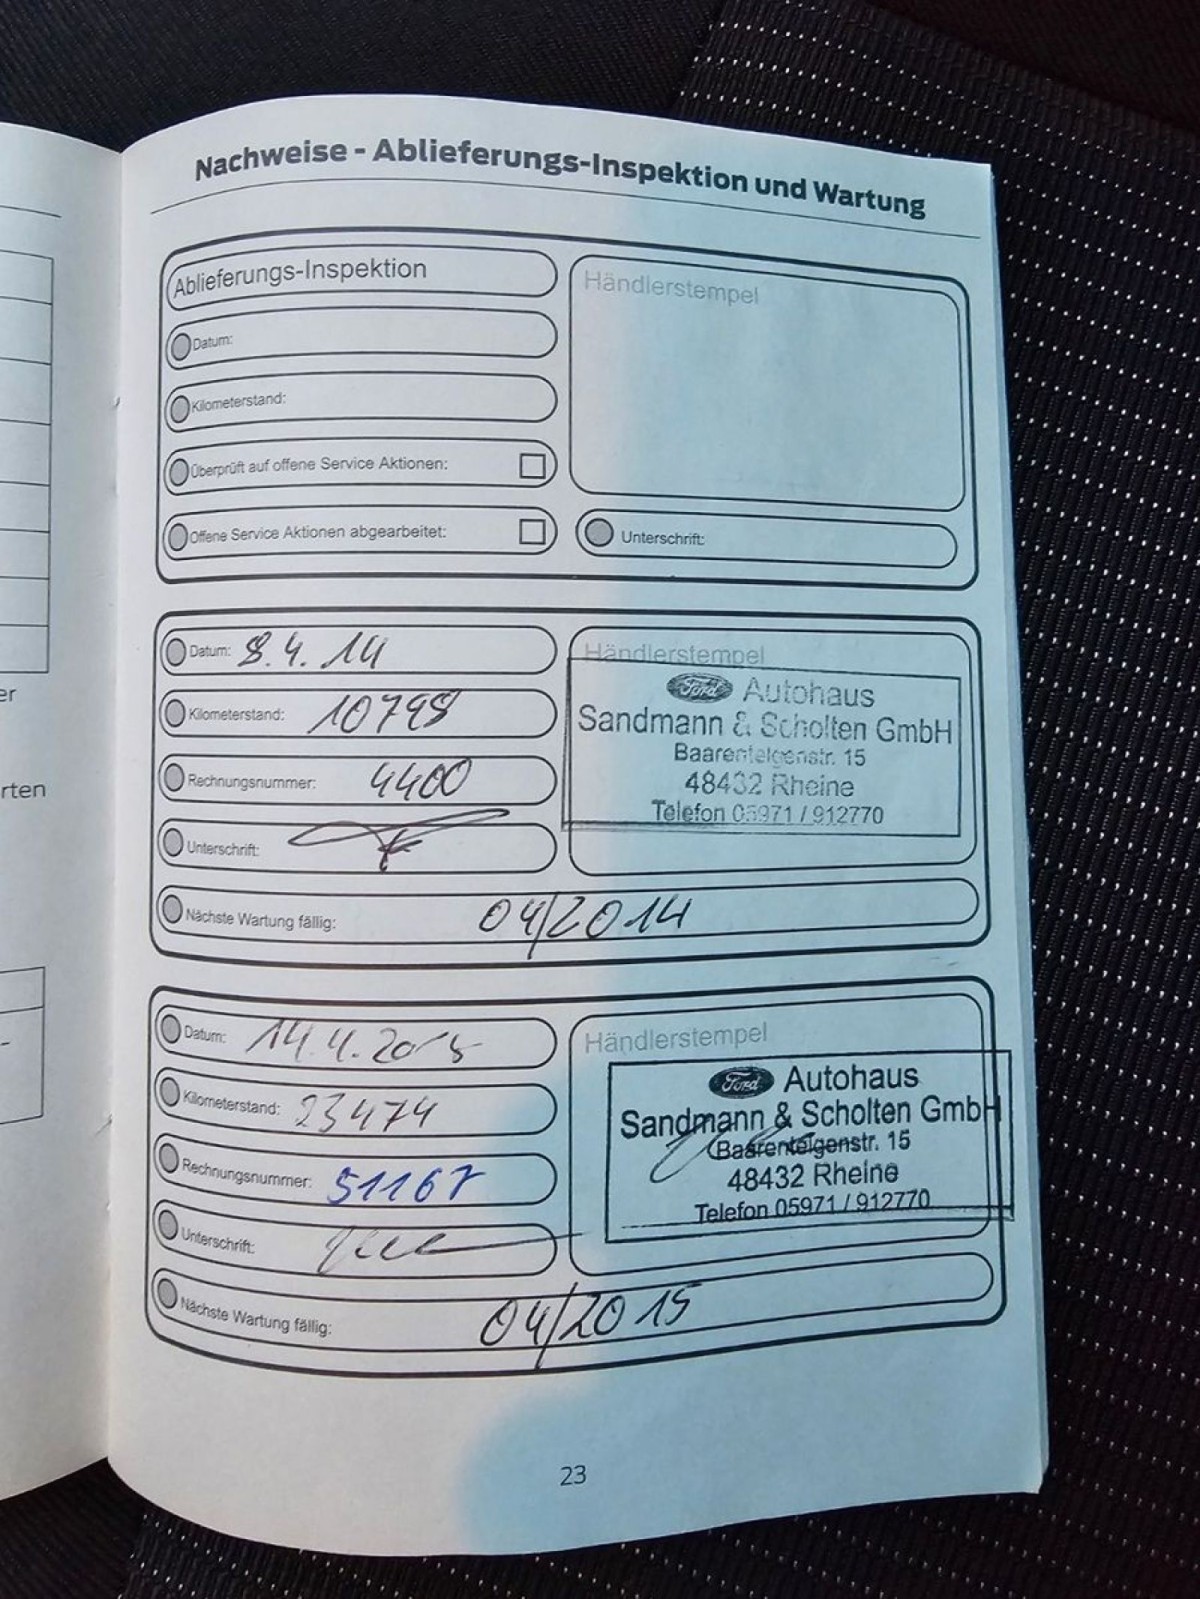 er
rten
Nachweise - Ablieferungs-Inspektion und Wartung
Ablieferungs-Inspektion
Händlerstempel
Datum:
Kilometerstand:
Überprüft auf offene Service Aktionen:
Offene Service Aktionen abgearbeitet:
Unterschrift:
Datum: 8.4.14
Händlerstempel
Kilometerstand: 10798
Rechnungsnummer: 4400
Unterschrift:
Ford Autohaus
Sandmann & Scholten GmbH
Baarentelgenstr. 15
48432 Rheine
Telefon 05971 / 912770
Nächste Wartung fällig: 04/2014
Datum: 14.4.2015
Händlerstempel
Kilometerstand: 23474
Rechnungsnummer: 51167
Unterschrift:
Ford Autohaus
Sandmann & Scholten GmbH
Baarentelgenstr. 15
48432 Rheine
Telefon 05971 / 912770
Nächste Wartung fällig: 04/2015
23